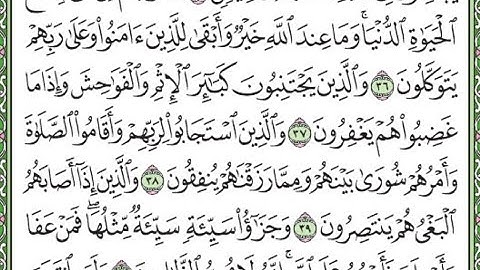 ٱلْحَيَوٰةِ ٱلدُّنْيَا ۖ وَمَا عِندَ ٱللَّهِ خَيْرٌ وَأَبْقَىٰ لِلَّذِينَ ءَامَنُوا۟ وَعَلَىٰ رَبِّهِمْ
يَتَوَكَّلُونَ ٣٦ وَٱلَّذِينَ يَجْتَنِبُونَ كَبَـٰٓئِرَ ٱلْإِثْمِ وَٱلْفَوَٰحِشَ وَإِذَا مَا
غَضِبُوا۟ هُمْ يَغْفِرُونَ ٣٧ وَٱلَّذِينَ ٱسْتَجَابُوا۟ لِرَبِّهِمْ وَأَقَامُوا۟ ٱلصَّلَوٰةَ
وَأَمْرُهُمْ شُورَىٰ بَيْنَهُمْ وَمِمَّا رَزَقْنَـٰهُمْ يُنفِقُونَ ٣٨ وَٱلَّذِينَ إِذَآ أَصَابَهُمُ
ٱلْبَغْىُ هُمْ يَنتَصِرُونَ ٣٩ وَجَزَٰٓؤُا۟ سَيِّئَةٍ سَيِّئَةٌ مِّثْلُهَا ۖ فَمَنْ عَفَا